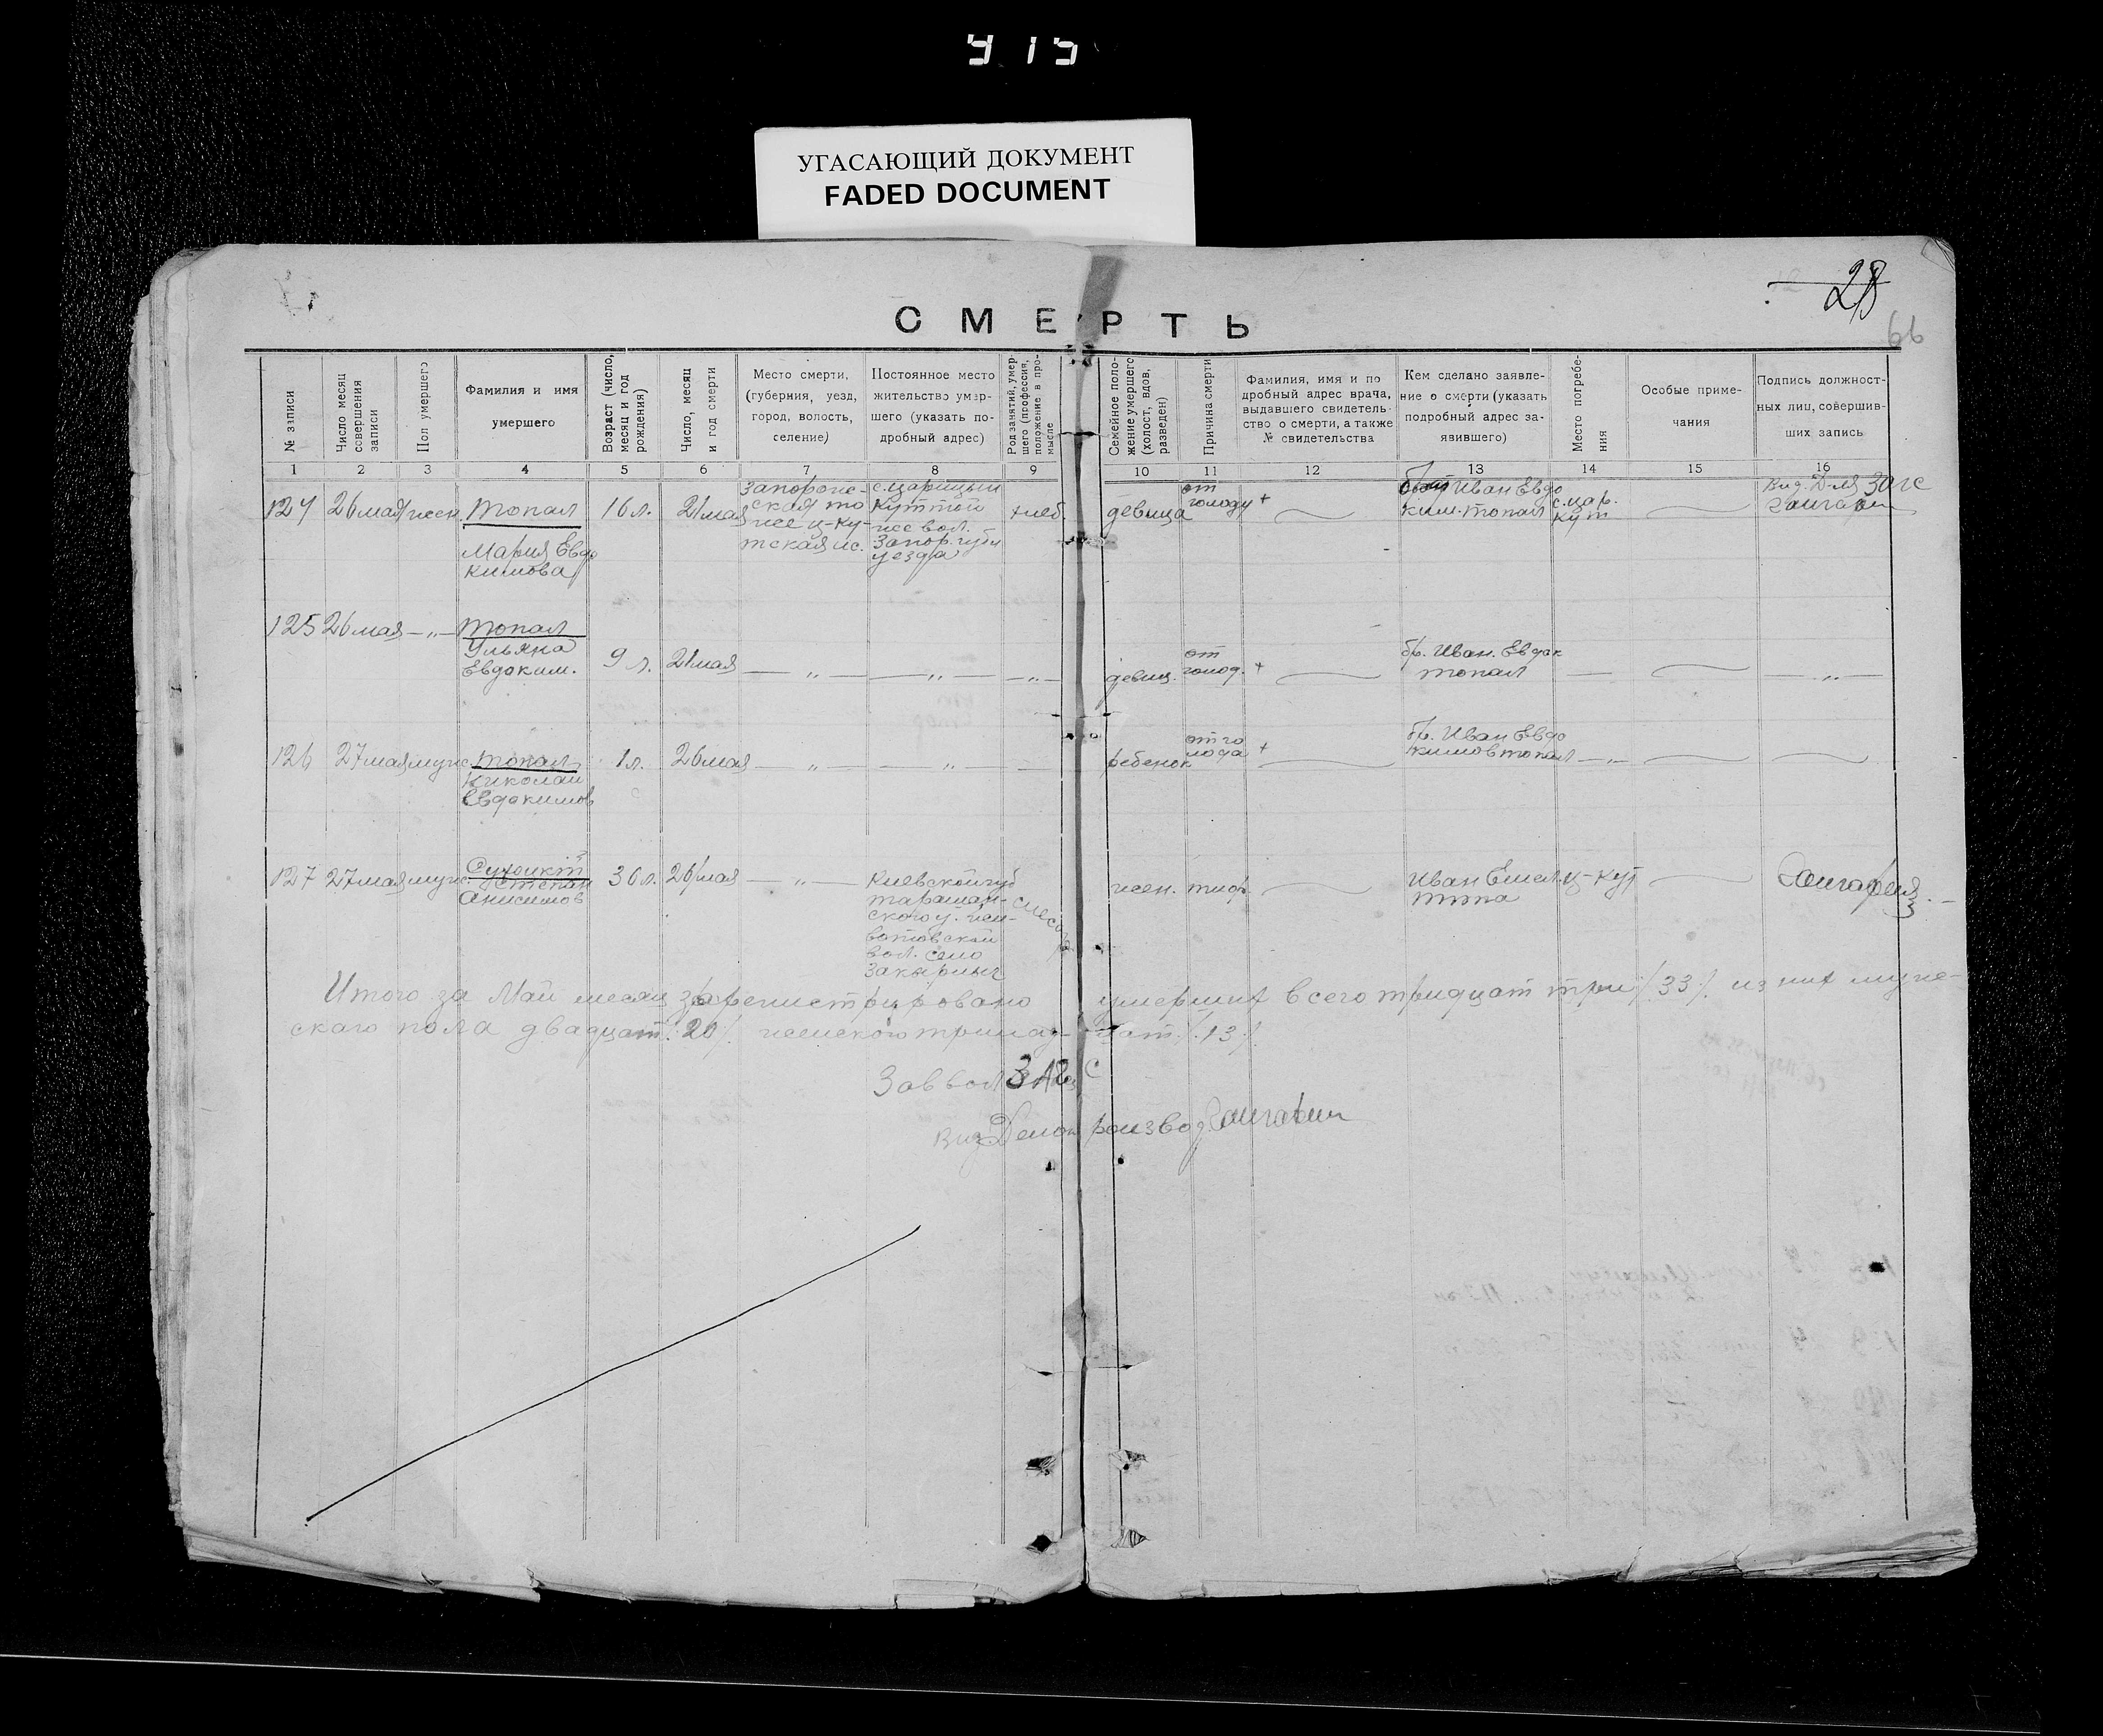 915
УГАСАЮЩИЙ ДОКУМЕНТ
FADED DOCUMENT
28
66
СМЕРТЬ
№ записи
Число месяц совершения записи
Пол умершего
Фамилия и имя умершего
Возраст (число, месяц и год рождения)
Число, месяц и год смерти
Место смерти, (губерния, уезд, город, волость, селение)
Постоянное место жительство умершего (указать подробный адрес)
Род занятий, умершего (профессия, положение в промысле
Семейное положение умершего (холост, вдов, разведен)
Причина смерти
Фамилия, имя и подробный адрес врача, выдавшего свидетельство о смерти, а также № свидетельства
Кем сделано заявление о смерти (указать подробный адрес заявившего)
Место погребения
Особые примечания
Подпись должностных лиц, совершивших запись
1 2 3 4 5 6 7 8 9 10 11 12 13 14 15 16
124 26 мая женск. Топал
Мария Евдо
кимова
16 л. 21 мая
Запорож-
ская то
же ц-Ку-
тская
с. Царицын
Кут той
же вол.
Запор. губ
уезда
хлеб.
девица
от
голоду +
Иван Евдо
ким. Топал
с. Цар.
Кут
125 26 мая —„— Топал
Ульяна
Евдоким.
9 л. 21 мая —„— —„— —„—
девиц.
от
голод. +
бр. Иван. Евдок
Топал
— —„—
126 27 мая муж. Топал
Николай
Евдокимов
1 л. 26 мая —„— —„— —
ребенок
от го
лода +
бр. Иван Евдо
кимов Топал —„—
127 27 мая муж.
Степан
Анисимов
30 л. 26 мая —„—
Киевской губ
таращан-
ского у.
вол. село
жен. тиф.
Иван
ц-Кут
Итого за Май месяц зарегистрировано умерших всего тридцат три /33/. из них муже-
скаго пола двадцат /20/. женского тринад- цат /13/.
Заввол ЗАГС
Делопроизвод